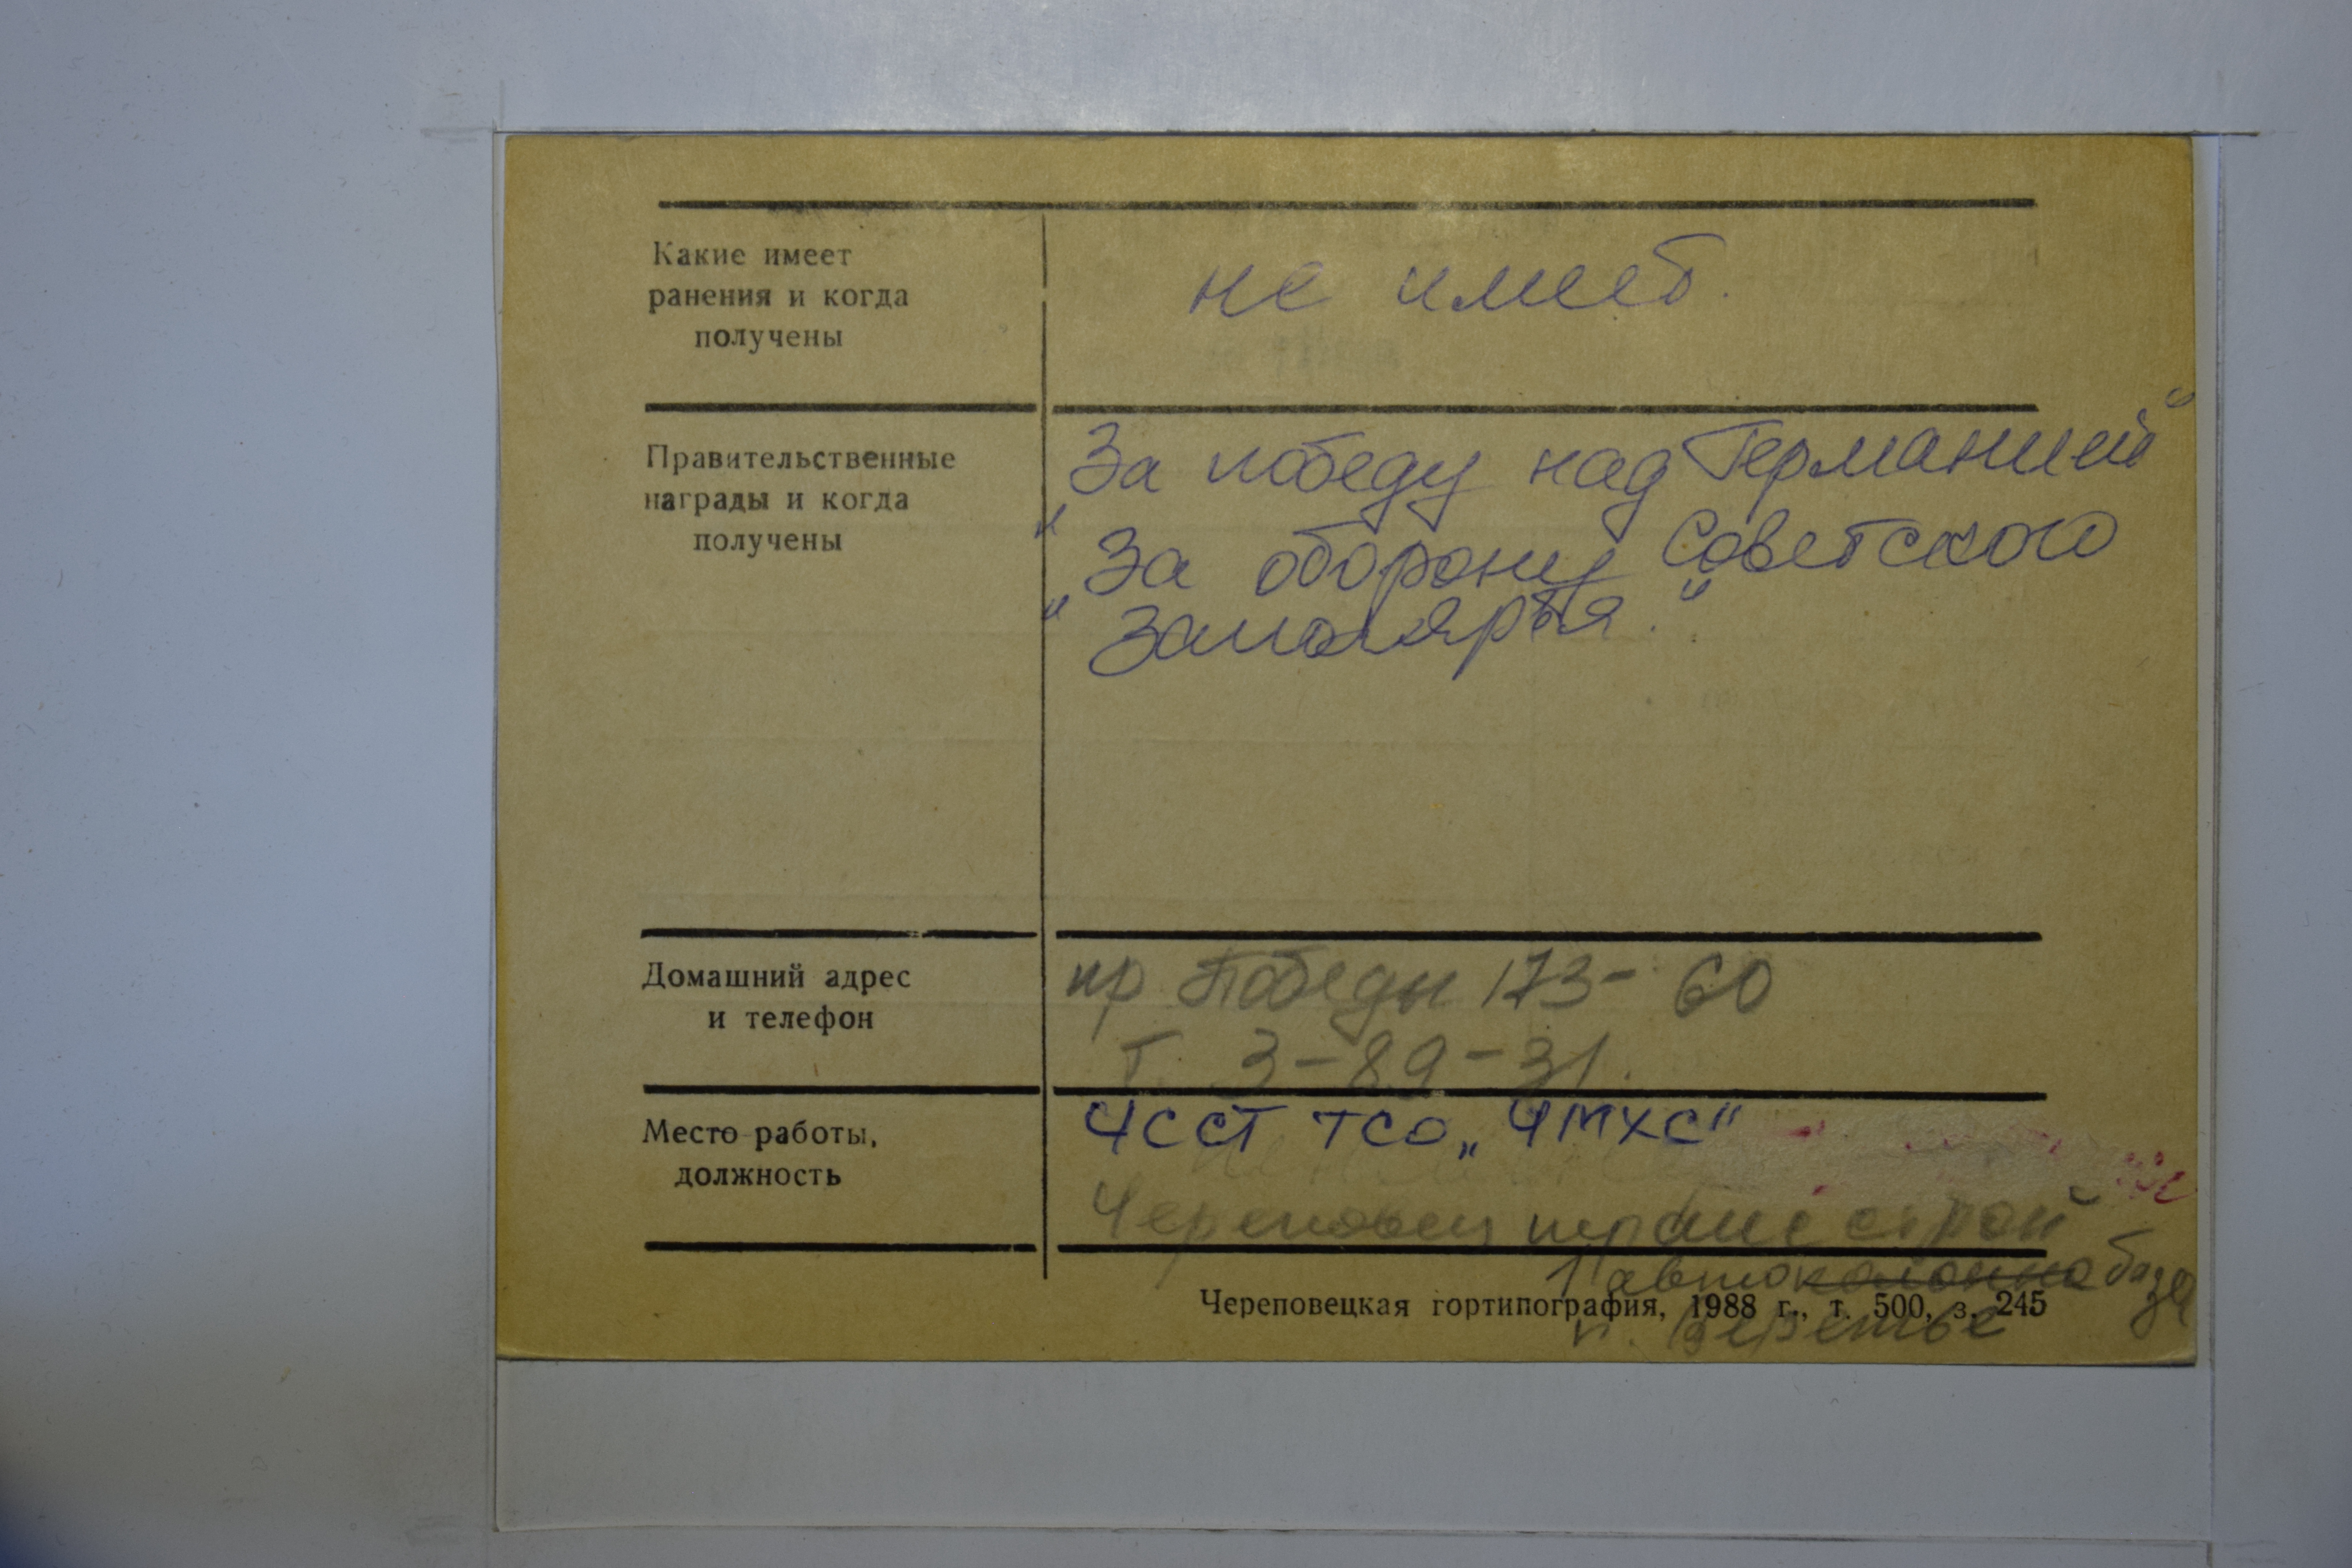 Какие имеет
ранения и когда
получены
не имеет.
Правительственные
награды и когда
получены
„За победу над Германией"
„За оборону Советского
Заполярья."
Домашний адрес
и телефон
пр Победы 173-60
т. 3-89-31.
Место работы,
должность
ЧССТ ТСО „ЧМХС"
Череповец трансстрой
автоколонна база
п. Веретье
Череповецкая гортипография, 1988 г., т. 500, з. 245